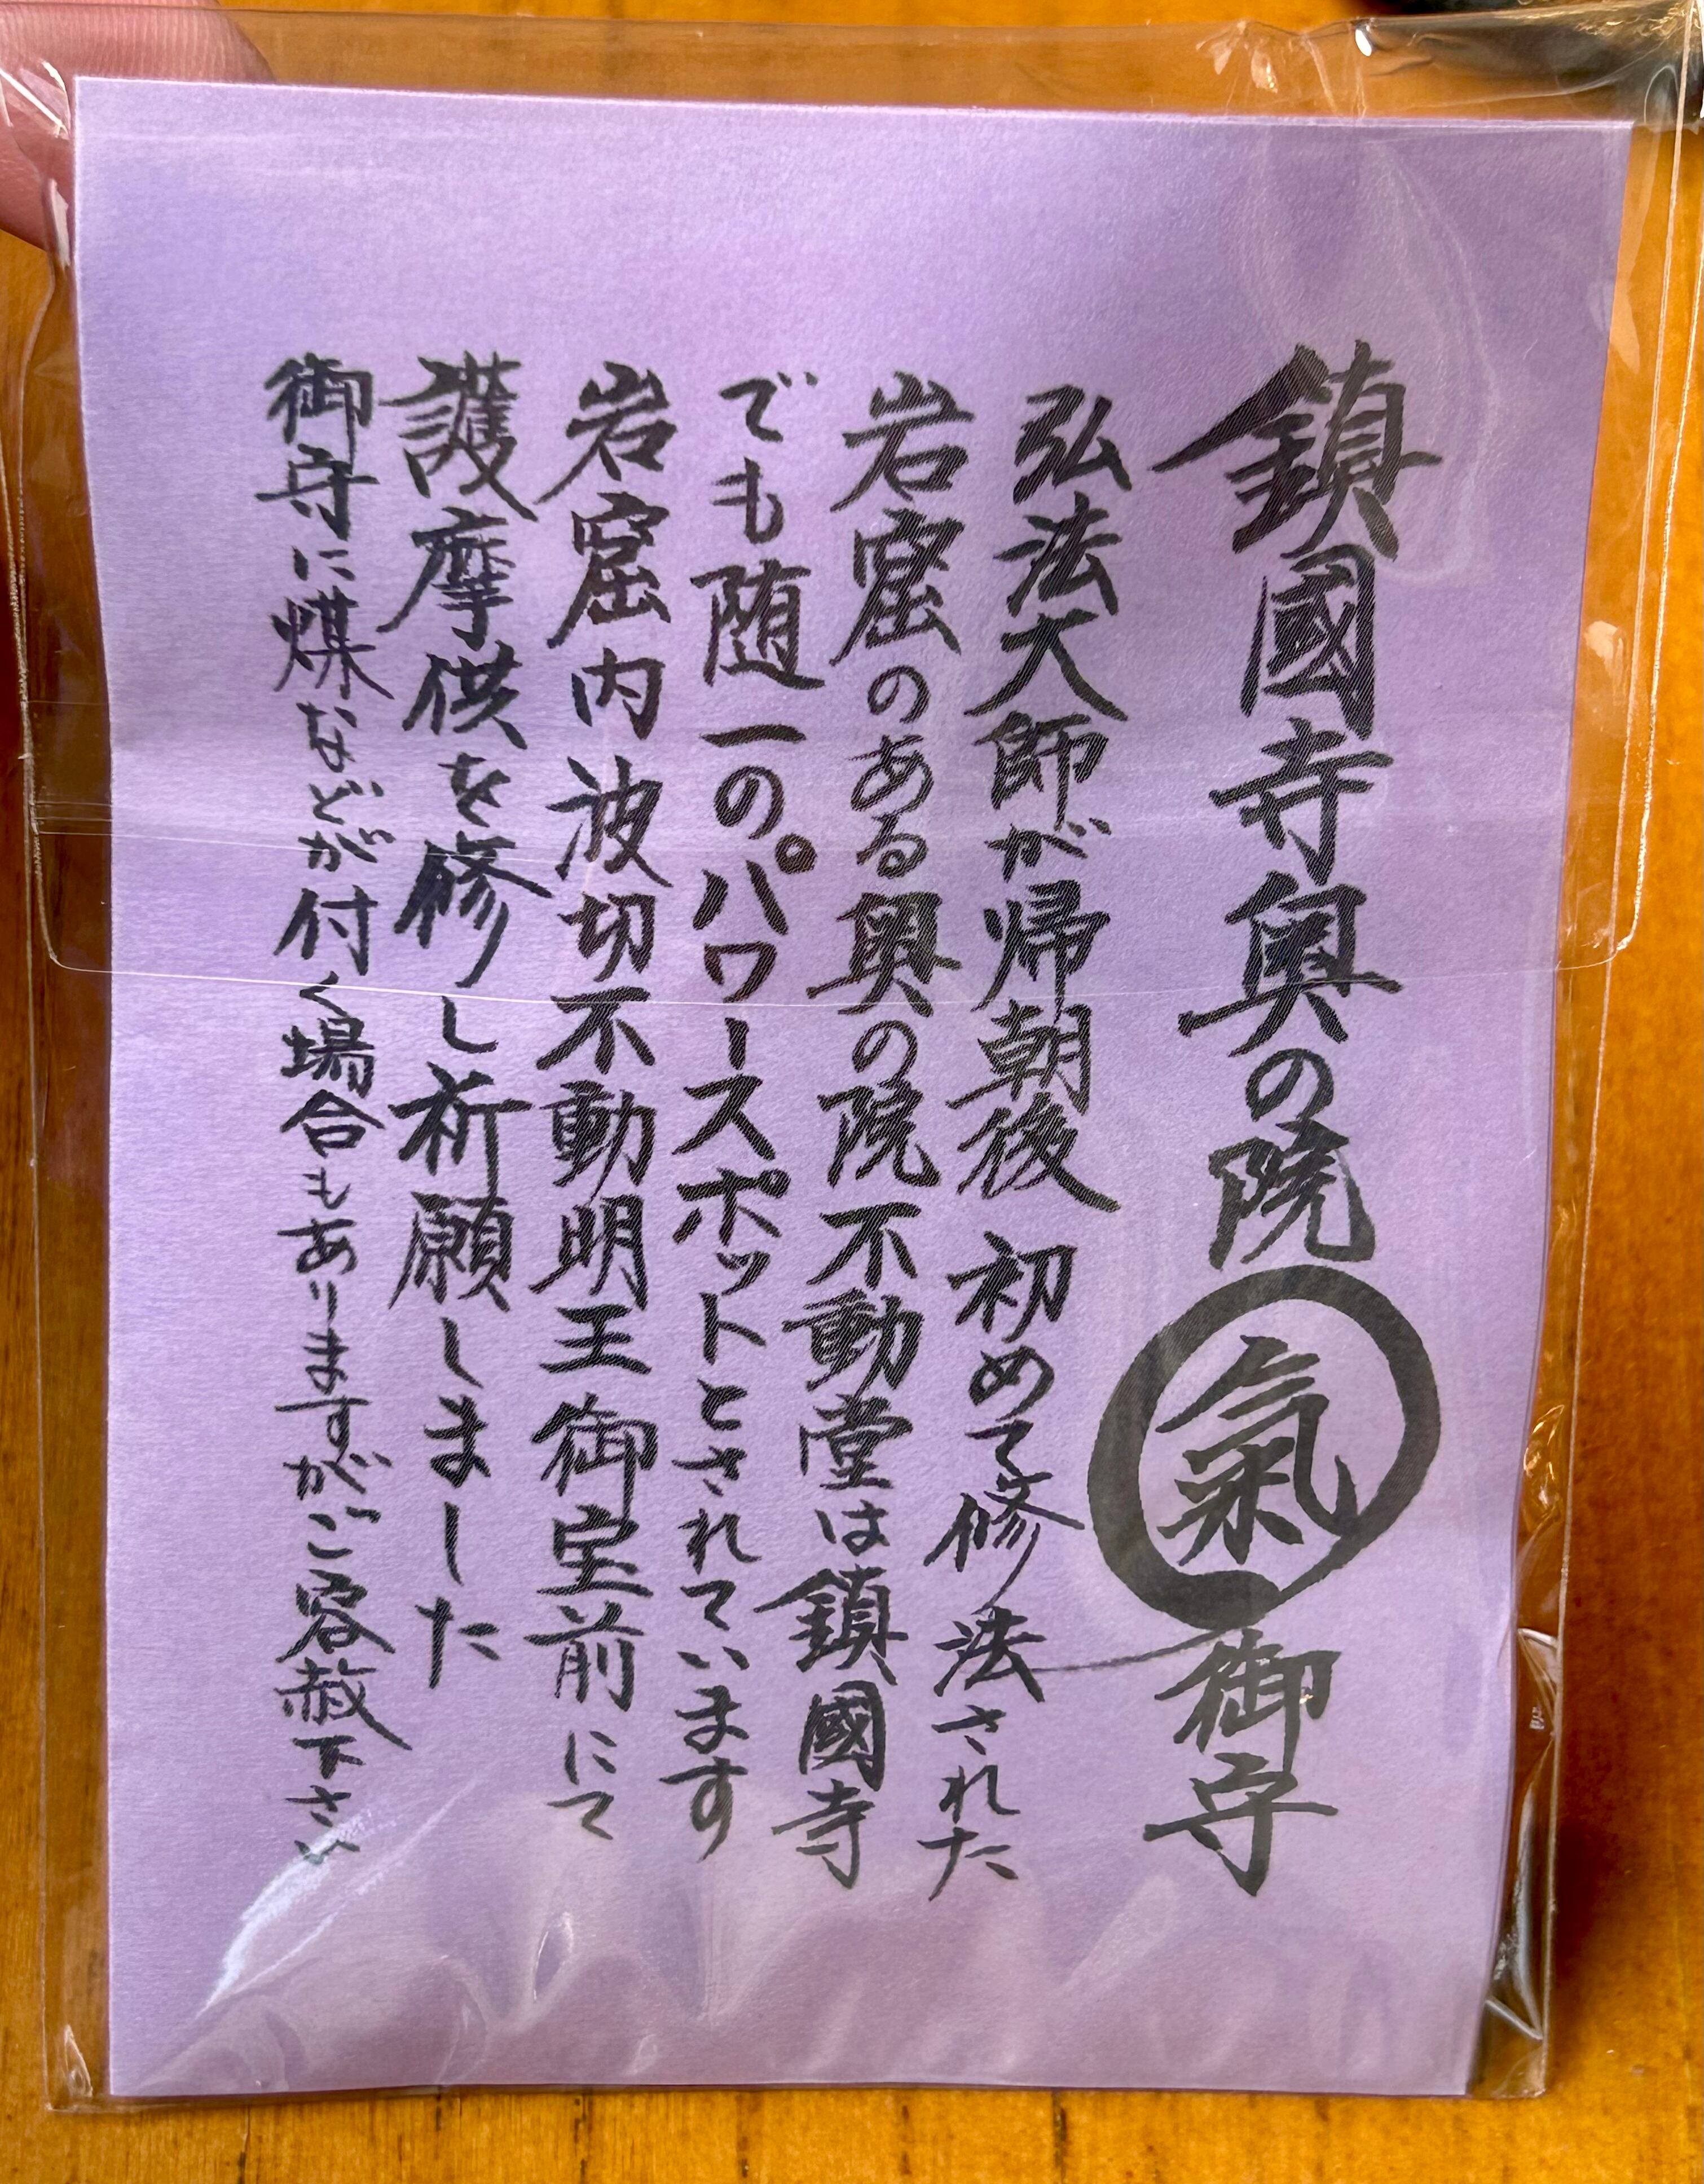 鎮國寺奥の院氣御守
弘法大師が帰朝後 初めて修法された
岩窟のある奥の院不動堂は鎮國寺
でも随一のパワースポットとされています
岩窟内波切不動明王御宝前にて
護摩供を修し祈願しました
御守に煤などが付く場合もありますがご容赦下さい